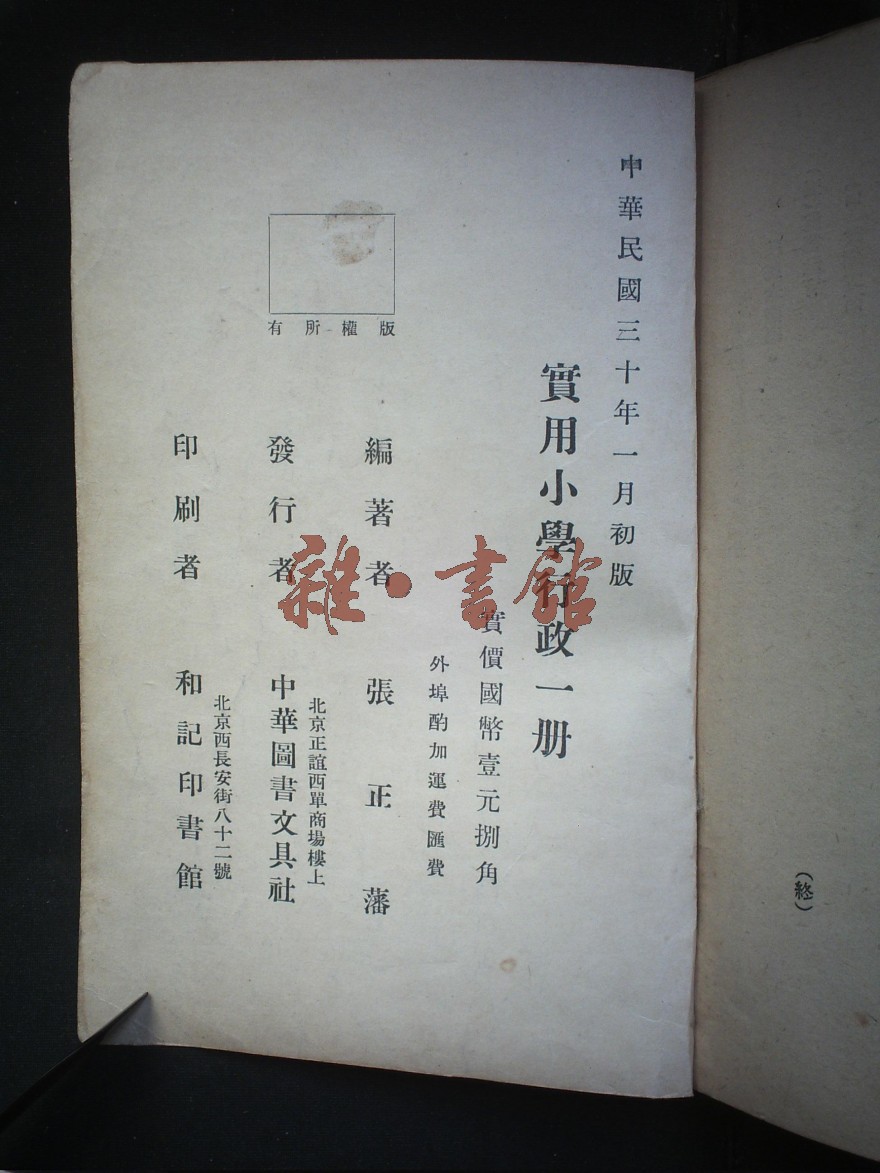 中華民國三十年一月初版
實用小學行政一册
實價國幣壹元捌角
外埠酌加運費匯費
編著者 張正藩
北京正誼西單商場樓上
發行者 中華圖書文具社
北京西長安街八十二號
印刷者 和記印書館
版權所有
雜·書館
(終)